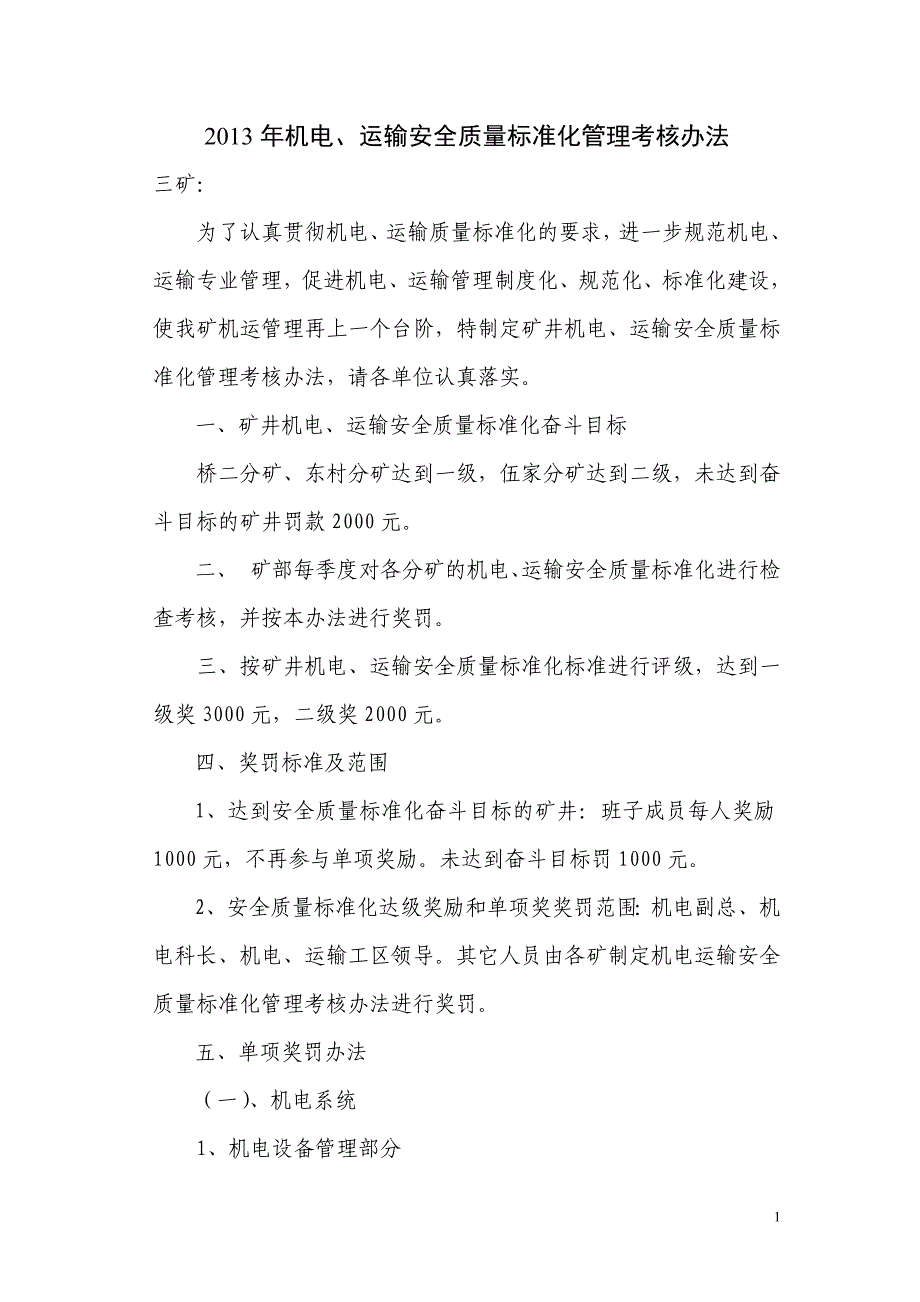 2013 年机电、运输安全质量标准化管理考核办法
三矿：
为了认真贯彻机电、运输质量标准化的要求，进一步规范机电、
运输专业管理，促进机电、运输管理制度化、规范化、标准化建设，
使我矿机运管理再上一个台阶，特制定矿井机电、运输安全质量标
准化管理考核办法，请各单位认真落实。
一、矿井机电、运输安全质量标准化奋斗目标
桥二分矿、东村分矿达到一级，伍家分矿达到二级，未达到奋
斗目标的矿井罚款 2000 元。
二、 矿部每季度对各分矿的机电、运输安全质量标准化进行检
查考核，并按本办法进行奖罚。
三、按矿井机电、运输安全质量标准化标准进行评级，达到一
级奖 3000 元，二级奖 2000 元。
四、奖罚标准及范围
1、达到安全质量标准化奋斗目标的矿井：班子成员每人奖励
1000 元，不再参与单项奖励。未达到奋斗目标罚 1000 元。
2、安全质量标准化达级奖励和单项奖奖罚范围：机电副总、机
电科长、机电、运输工区领导。其它人员由各矿制定机电运输安全
质量标准化管理考核办法进行奖罚。
五、单项奖罚办法
（一）、机电系统
1、机电设备管理部分
1